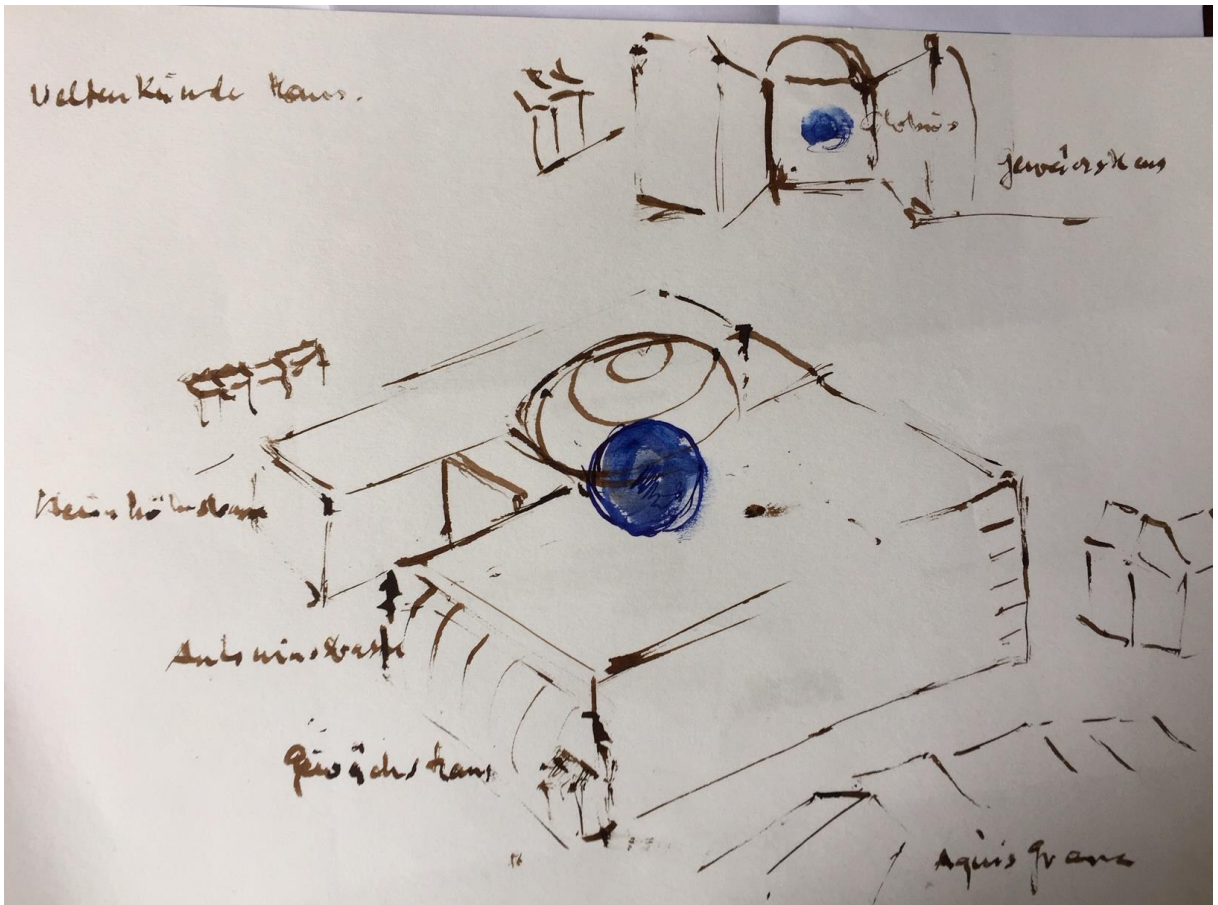 Weltenkunde Haus.
Globus
Gewächshaus
Antoniusstrasse
Gewächshaus
Aquis Grana